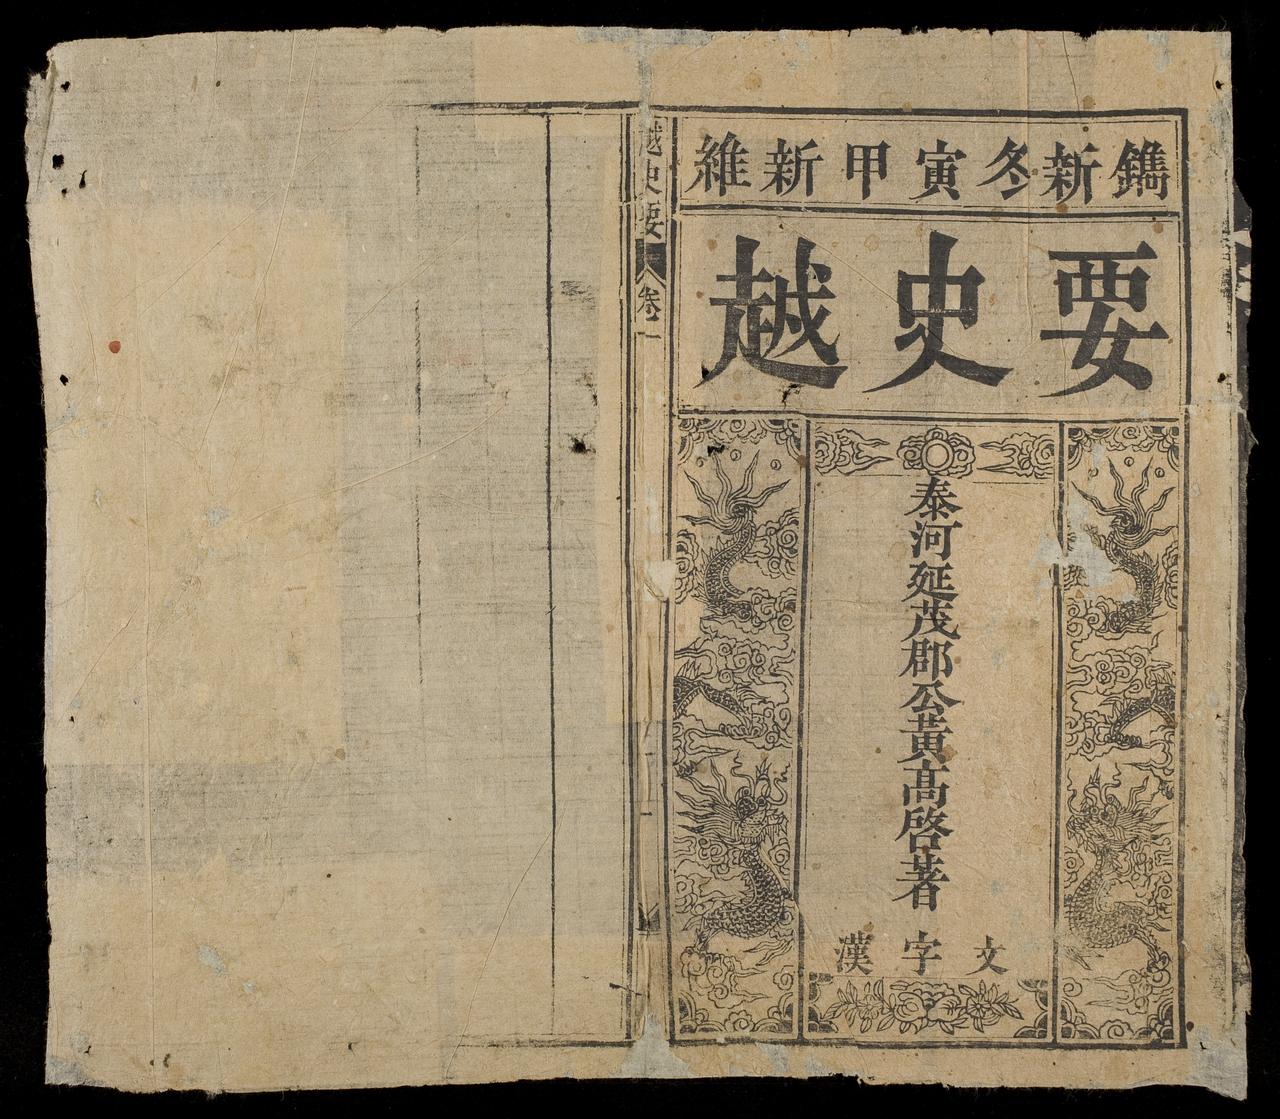 維新甲寅冬新鐫
越史要
泰河延茂郡公黃高啓著
漢字文
越史要 卷一